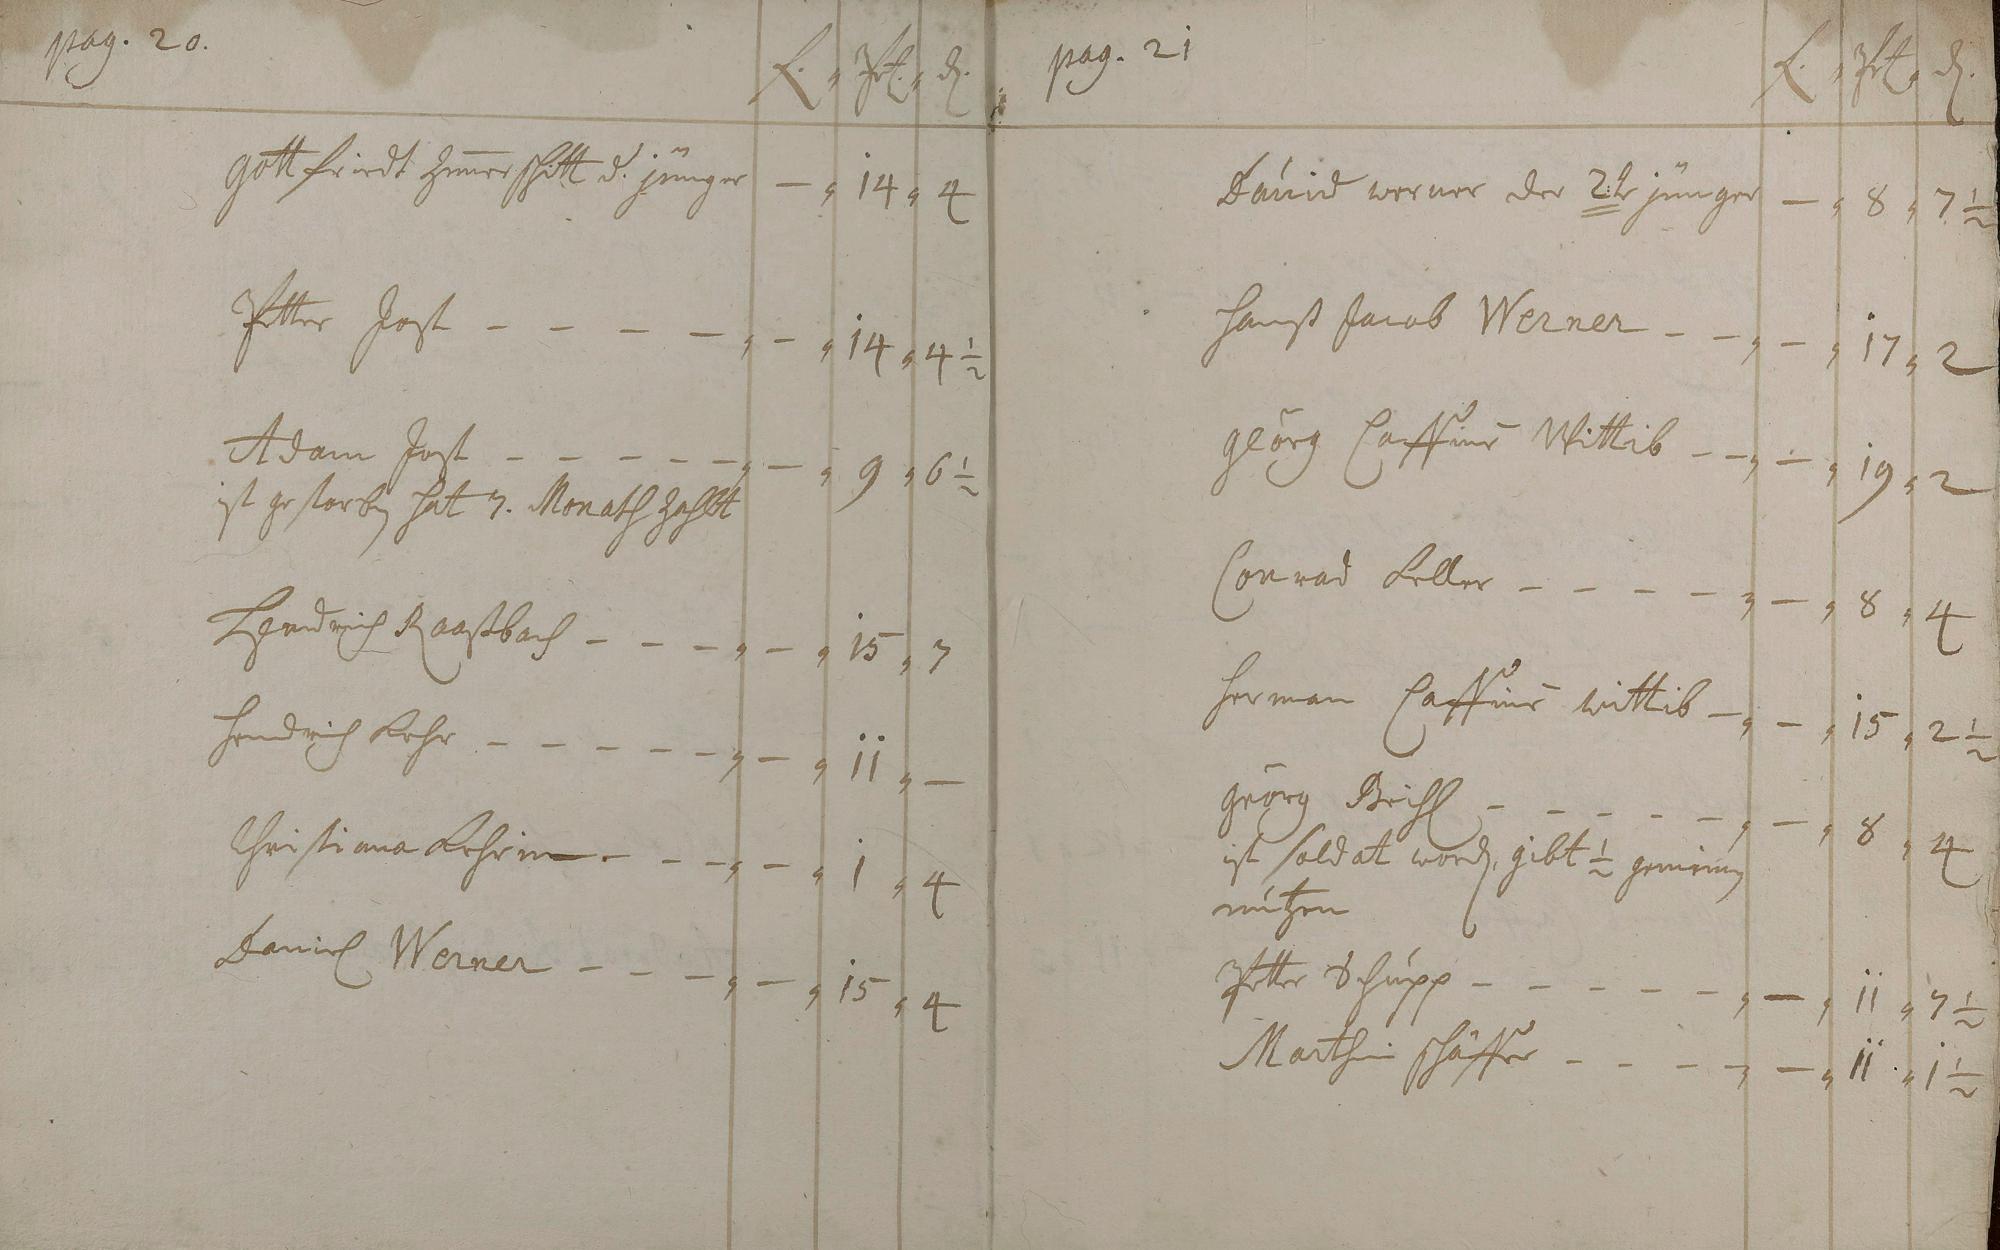 pag. 20.
f. " Pet. " d.
Gottfriedt Zimerschitt d. jünger — " 14 " 4
Petter Jost - - - - " — " 14 " 4 1/2
Adam Jost - - - - - " — " 9 " 6 1/2
ist gestorben hat 7. Monath Zahlt
Hendrich Raaßbach - - - " — " 15 " 7
Hendrich Kehr - - - - - " — " 11 " —
Christiana Kehrin - - - " — " 1 " 4
Daniel Werner - - - " — " 15 " 4
pag. 21
f. " Pet. " d.
David werner der 2te jünger — " 8 " 7 1/2
Hanß Jacob Werner - - " — " 17 " 2
Geörg Wittib - - " — " 19 " 2
Conrad Keller - - - - " — " 8 " 4
Herman wittib - " — " 15 " 2 1/2
Geörg - - - - - " — " 8 " 4
ist soldat word, gibt 1/2 gemeinen
nutzen
Petter Schupp - - - - - " — " 11 " 7 1/2
Marthin schäffer - - - - " — " 11 " 1 1/2